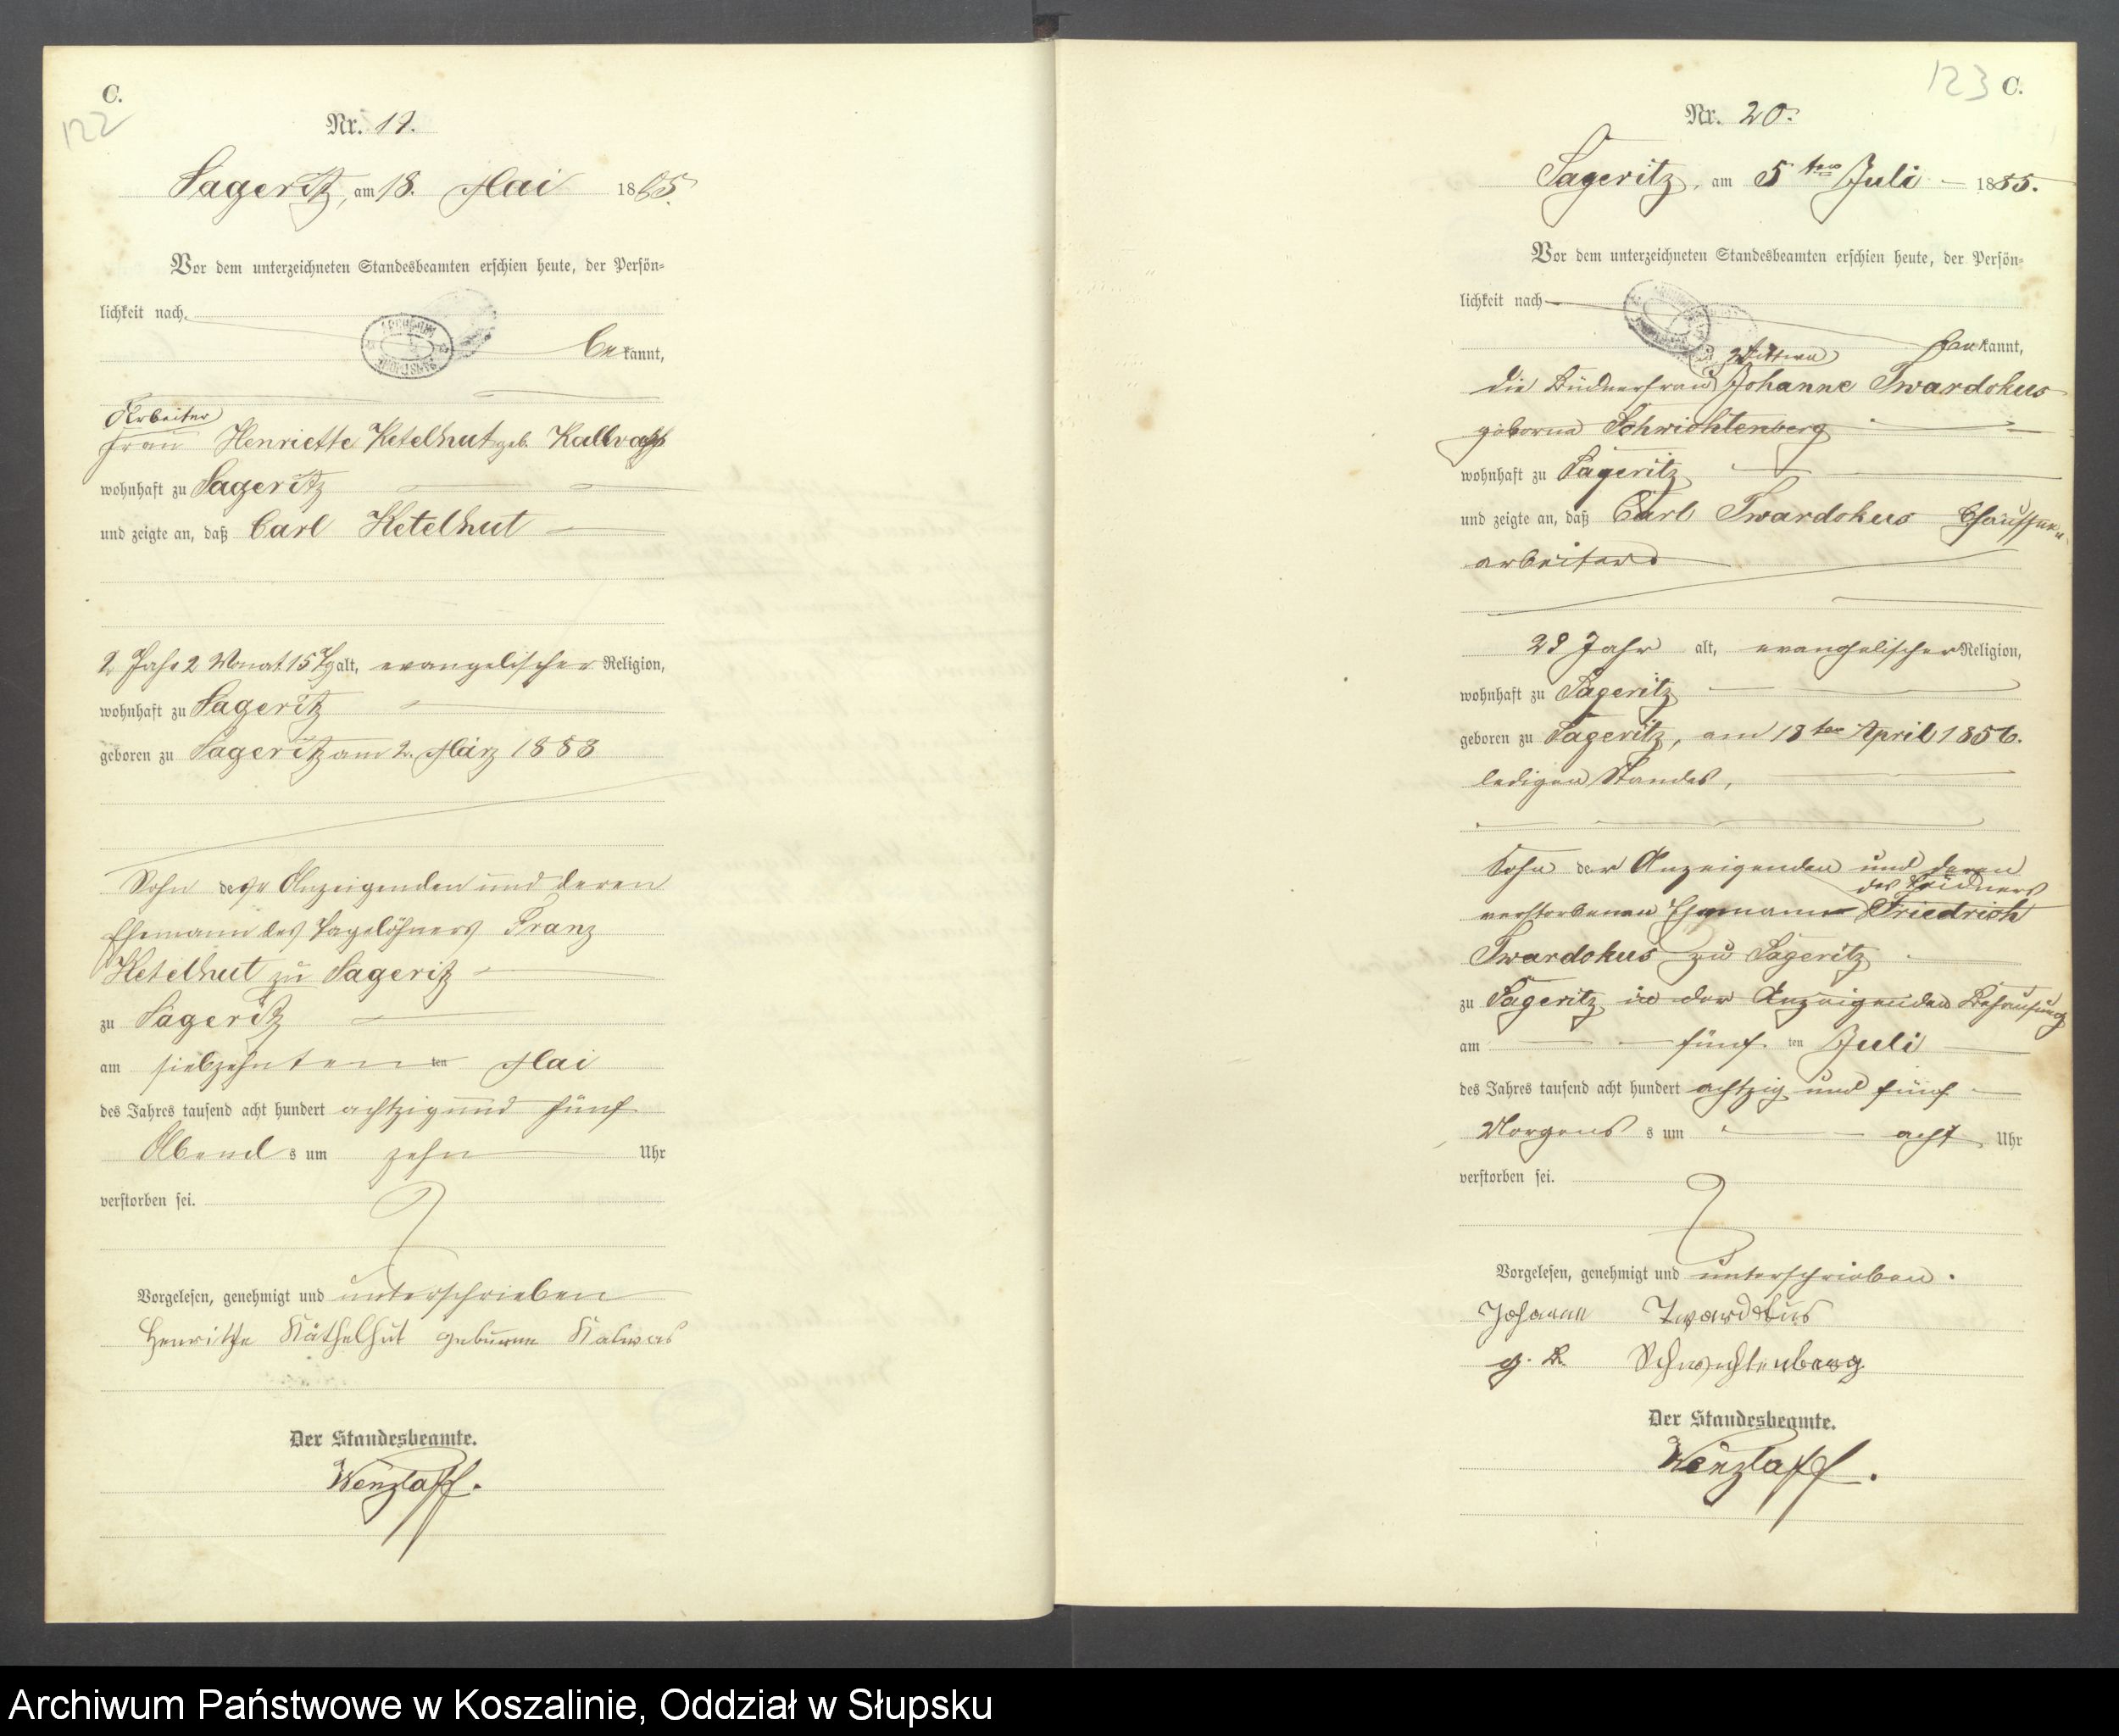 C.
122
Nr. 19.
Sageritz, am 18. Mai 1885.
Vor dem unterzeichneten Standesbeamten erschien heute, der Persön-
lichkeit nach
bekannt,
Arbeiter
frau Henriette Ketelhut geb. Kallwass
wohnhaft zu Sageritz
und zeigte an, daß Carl Ketelhut
2 Jahr 2 Monat 15 Tg alt, evangelischer Religion,
wohnhaft zu Sageritz
geboren zu Sageritz am 2. März 1883
Sohn der Anzeigenden und deren
Ehemann des Tagelöhners Franz
Ketelhut zu Sageritz
zu Sageritz
am siebzehnten ten Mai
des Jahres tausend acht hundert achtzig und fünf
Abends um zehn Uhr
verstorben sei.
Vorgelesen, genehmigt und unterschrieben
Henritte Käthelhut geburene Kalwas
Der Standesbeamte.
Wenzlaff.
123 C.
Nr. 20.
Sageritz, am 5ten Juli 1885.
Vor dem unterzeichneten Standesbeamten erschien heute, der Persön-
lichkeit nach
kannt,
Wittwe
die Büdnerfrau Johanne Twardokus
geborne Schwichtenberg
wohnhaft zu Sageritz
und zeigte an, daß Carl Twardokus Chaussee
arbeiter
29 Jahr alt, evangelischer Religion,
wohnhaft zu Sageritz
geboren zu Sageritz, am 13ten April 1856.
ledigen Standes,
Sohn der Anzeigenden und deren
des Büdners
verstorbenen Ehemann Friedrich
Twardokus zu Sageritz
zu Sageritz in der Anzeigenden Behausung
am fünf ten Juli
des Jahres tausend acht hundert achtzig und fünf
Morgens s um acht Uhr
verstorben sei.
Vorgelesen, genehmigt und unterschrieben.
Johanne Twardokus
g. B. Schwichtenberg
Der Standesbeamte.
Wenzlaff.
Archiwum Państwowe w Koszalinie, Oddział w Słupsku